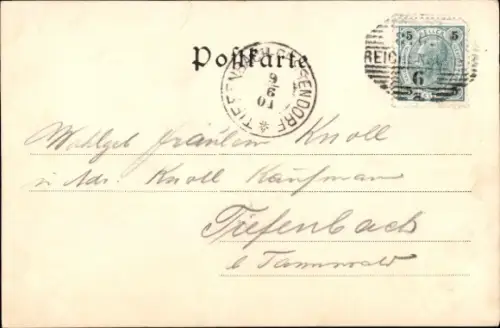 Postkarte
5 5
REICH
6
5 5
TIEFENBACH-DESSENDORF
6
9
01
Wohlgeb Fräulein Knoll
in Adr. Knoll Kaufmann
Tiefenbach
b Tannwald